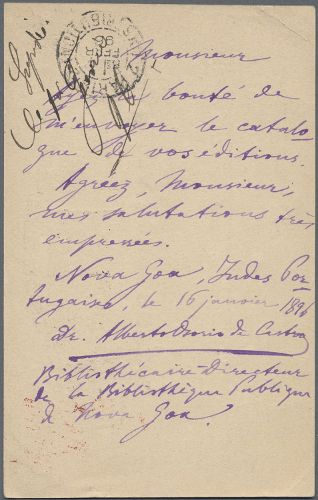 Monsieur
Ayez la bonté de
m'envoyer le catalo-
gue de vos éditions.
Agreez, Monsieur,
mes salutations très
empressées.
Nova Goa, Indes Por-
tugaises, le 16 janvier 1896
Dr. Alberto Osorio de Castro
Bibliothécaire-Directeur
de la Bibliothèque Publique
de Nova Goa.